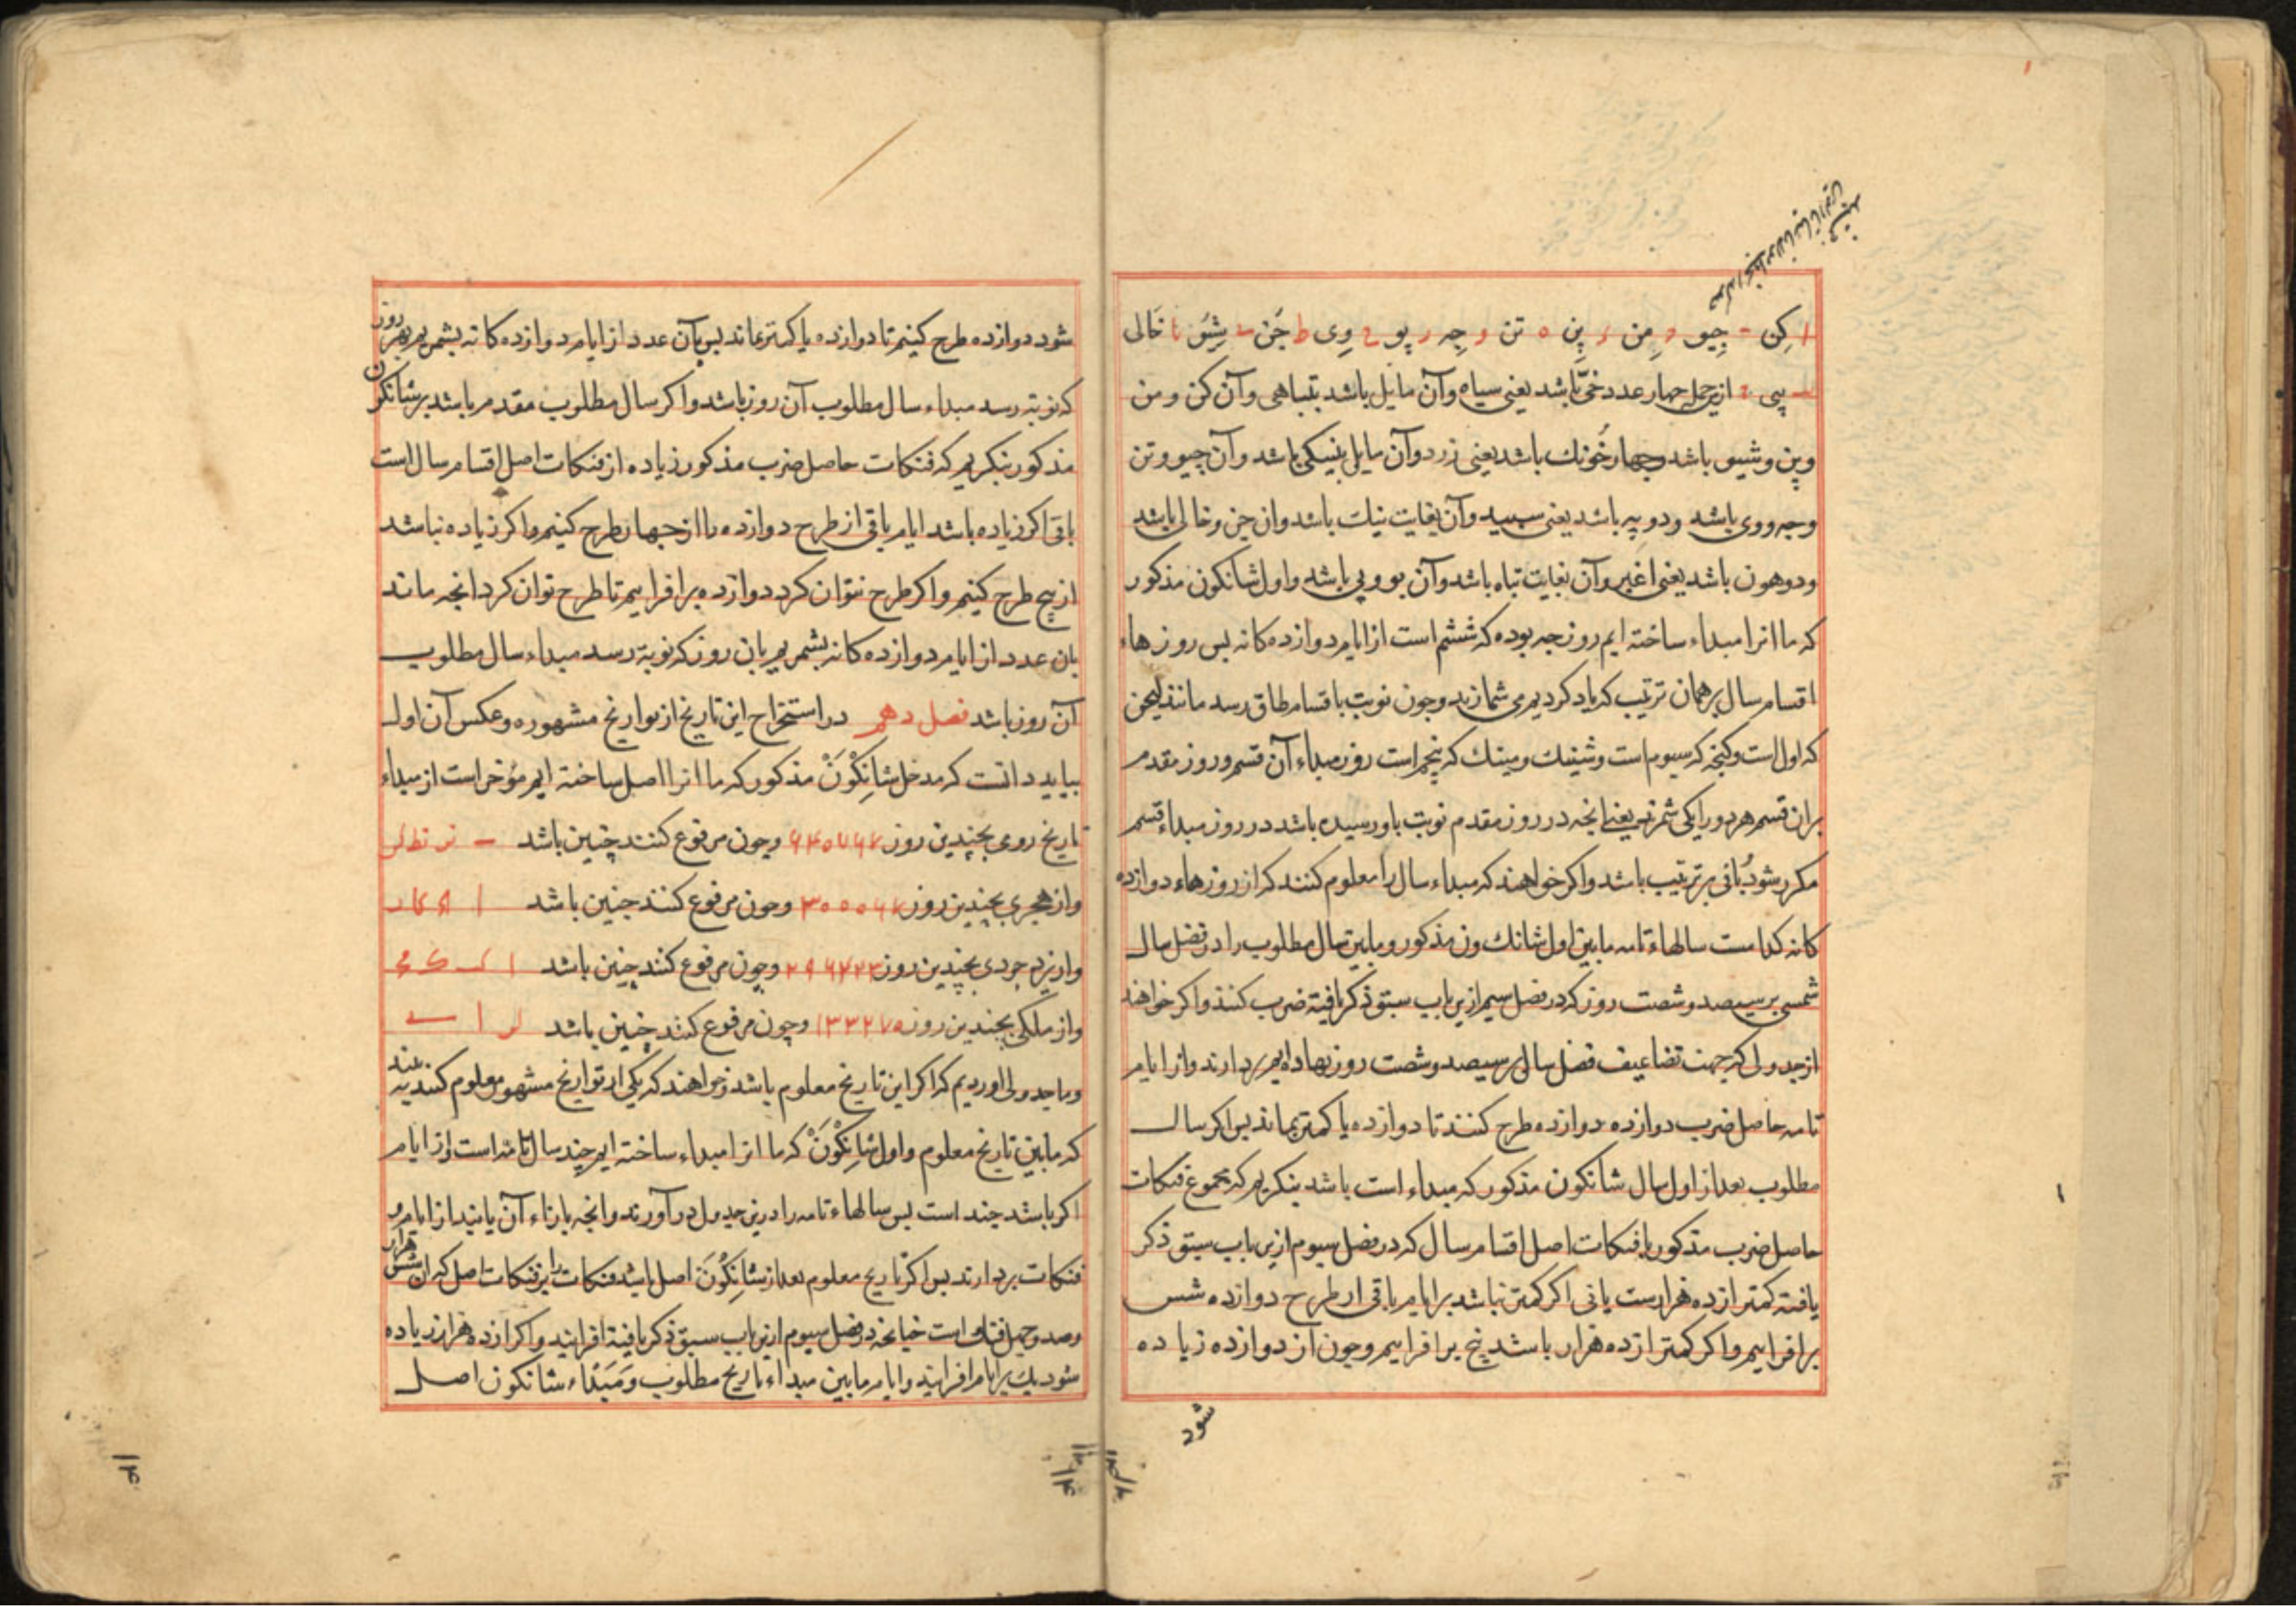 ا کن ـ جیو و من ر پن ه تن و جه ر پو ح وی ط جن ـ شیو یا خالی
پی از جمله چهار عدد خی باشد یعنی سیاه و آن مایل باشد بتباهی و آن کن و من
و پن و شیو باشد و چهار خونک باشد یعنی زرد و آن مایل بنیکی باشد و آن جیو و تن
و جه و وی باشد و دو پیه باشد یعنی سپید و آن بغایت نیک باشد و ان جن و خالی باشد
و دو هون باشد یعنی اغبر و آن بغایت تباه باشد و آن پو و پی باشد و اول شانکون مذکور
که ما انرا مبداء ساخته ایم روز جه بوده که ششم است از ایام دوازده کانه بس روزهاء
اقسام سال بر همان ترتیب که یاد کردیم می شمارند و چون نوبت باقسام طاق رسد مانند لیجن
که اول است و کنجه که سیوم است و شینک ومینک که پنجم است روز مبداء آن قسم و روز مقدم
بران قسم هر دو را یکی شمرند یعنی انجه در روز مقدم نوبت باو رسیده باشد در روز مبداء قسم
مکرر شود باقی بر ترتیب باشد و اکر خواهند که مبداء سال را معلوم کنند که از روزهاء دوازده
کانه کدامست سالهاء تامه ما بین اول شانک ون مذکور و مابین سال مطلوب را در فضل سال
شمسی بر سیصد و شصت روز که در فصل سیم ازین باب سبق ذکر یافته ضرب کنند و اکر خواهند
از جدولی که جهت تضاعیف فضل سال بر سیصد و شصت روز نهاده ایم بردارند و از ایام
تامه حاصل ضرب دوازده دوازده طرح کنند تا دوازده یا کمتر بماند بس اکر سال
مطلوب بعد از اول سال شانکون مذکور که مبداء است باشد بنکریم که مجموع فنکات
حاصل ضرب مذکور با فنکات اصل اقسام سال که در فصل سیوم ازین باب سبق ذکر
یافته کمتر از ده هزارست یا نی اکر کمتر نباشد بر ایام باقی از طرح دوازده شش
برافزاییم و اکر کمتر از ده هزار باشد پنج برافزاییم و چون از دوازده زیاده
شود
شود دوازده طرح کنیم تا دوازده یا کمتر بماند بس بآن عدد از ایام دوازده کانه بشمریم بهر روز
که نوبته رسد مبداء سال مطلوب آن روز باشد و اکر سال مطلوب مقدم باشد بر شانکون
مذکور بنکریم که فنکات حاصل ضرب مذکور زیاده از فنکات اصل اقسام سال است
یا نی اکر زیاده باشد ایام باقی از طرح دوازده را از چهار طرح کنیم و اکر زیاده نباشد
از پنج طرح کنیم و اکر طرح نتوان کرد دوازده برافزاییم تا طرح توان کرد انجه ماند
بان عدد از ایام دوازده کانه بشمریم بان روز که نوبته رسد مبداء سال مطلوب
آن روز باشد فصل دهم در استخراج این تاریخ از تواریخ مشهوره و عکس آن اول
بباید دانست که مدخل شانکون مذکور که ما انرا اصل ساخته ایم مؤخر است از مبداء
تاریخ رومی بچندین روز ۶۴۰۷۶۷ و چون مرفوع کنند چنین باشد
و از هجری بچندین روز ۳۰۰۰۶۷ و چون مرفوع کنند چنین باشد
و از یزدجردی بچندین روز ۲۹۶۴۴۳ و چون مرفوع کنند چنین باشد
و از ملکی بچندین روز ۱۳۳۲۷۵ و چون مرفوع کنند چنین باشد
و ما جدولی اوردیم که اکر این تاریخ معلوم باشد و خواهند که یکی از تواریخ مشهور معلوم کنند
که ما بین تاریخ معلوم و اول شانکون که ما انرا مبداء ساخته ایم چند سال تامه است و از ایام
اکر باشد چند است بس سالهاء تامه را درین جدول درآورند و انجه بازاء آن یابند از ایام و
فنکات بردارند بس اکر تاریخ معلوم بعد از شانکون اصل باشد فنکات را بر فنکات اصل که ان شش هزار
و صد و چهل فنک است چنانجه در فصل سیوم ازین باب سبق ذکر یافته افزایند و اکر از ده هزار زیاده
شود یک بر ایام افزایند و ایام ما بین مبداء تاریخ مطلوب و مبداء شانکون اصل